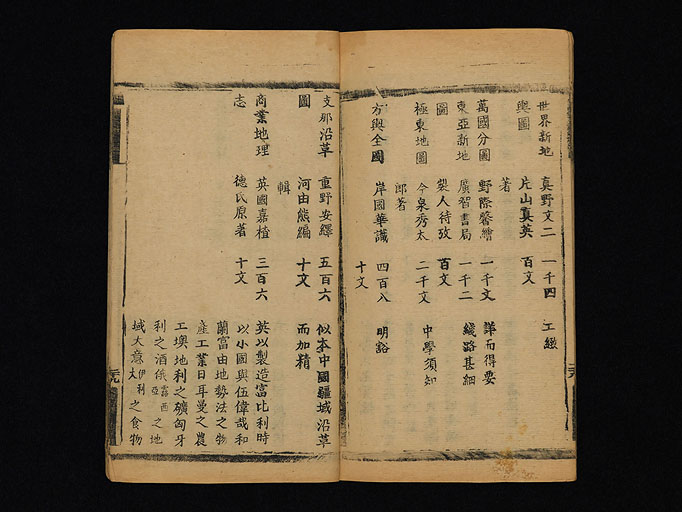 世界新地 真野文二 一千四 工緻
輿圖 片山眞英 百文
著
萬國分圖 野際馨繪 一千文 詳而得要
東亞新地 廣智書局 一千二 綫路甚細
圖 製人待攷 百文
極東地圖 今泉秀太 二千文 中學須知
郎著
方輿全國 岸國華識 四百八 明豁
十文
支那沿革 重野安繹 五百六 似本中國疆域沿革
圖 河田熊編 十文 而加精
輯
商業地理 英國嘉楂 三百六 英以製造富比利時
志 德氏原著 十文 以小國與伍偉哉和
蘭富由地勢法之物
產工業日耳曼之農
工墺地利之礦匈牙
利之酒俄露西亞之地
域大意大伊利之食物